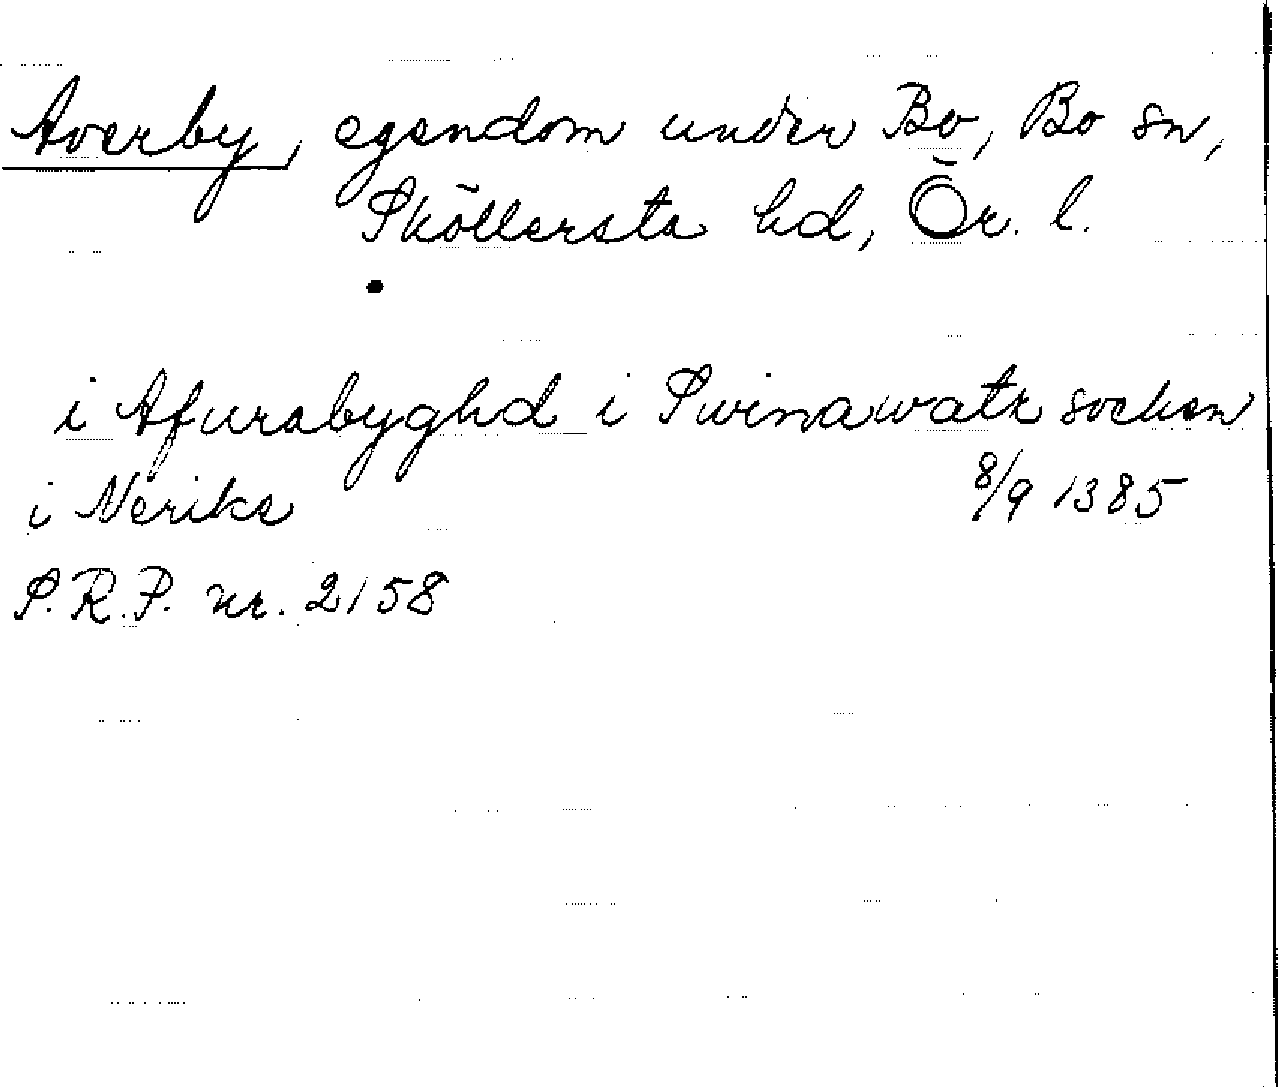 Averby, egendom under Bo, Bo sn,
Sköllersta hd, Ör. l.
i Afurabyghd i Swinawatn socken
i Nerike
S.R.P. nr. 2158
8/9 1385